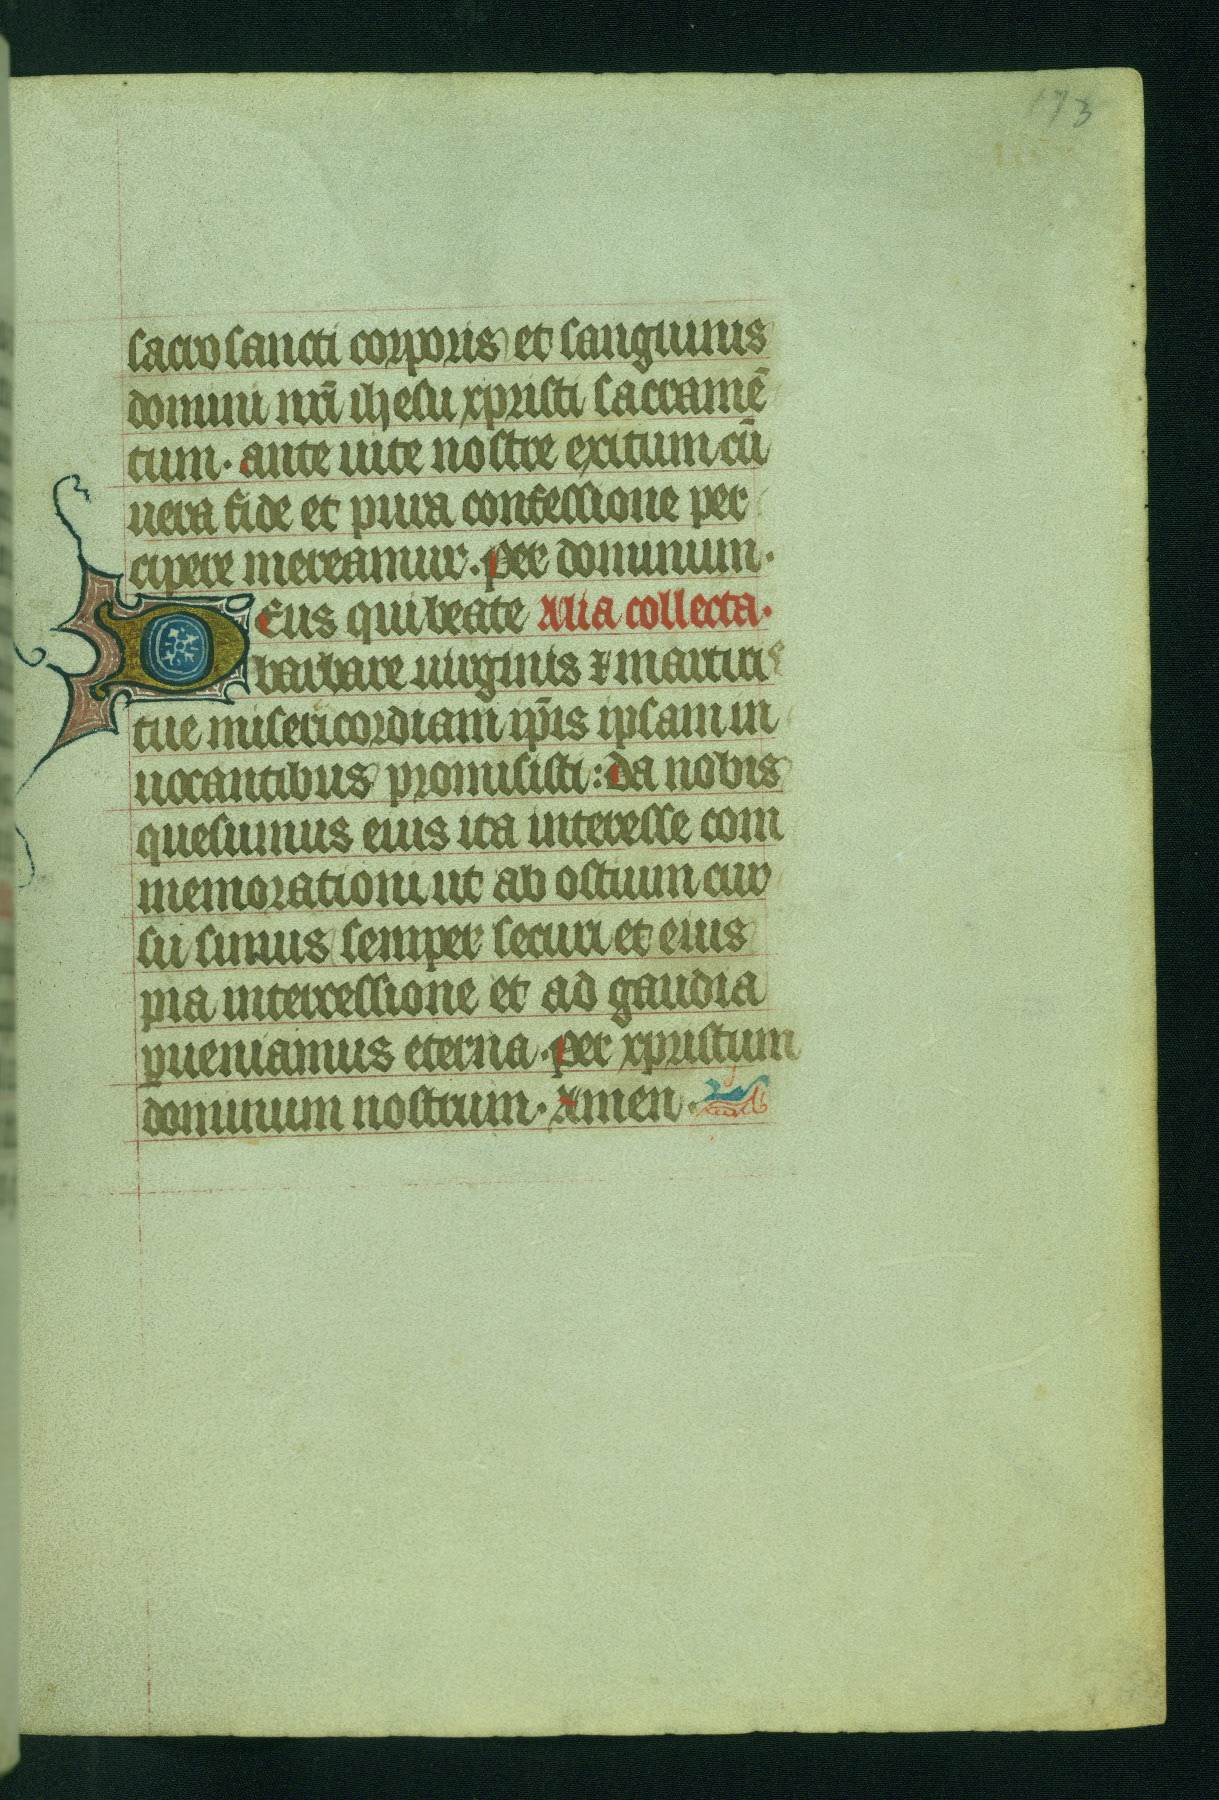 173
sacro sancti corporis et sanguinis
domini nr̃i ihesu xpristi sacramē
tum. ante uite nostre exitum cū
uera fide et pura confessione per
cipere mereamur. per dominum.
DEus qui beate Alia collecta.
barbare uirginis ⁊ martiris
tue misericordiam ip̄is ipsam in
uocantibus promisisti: da nobis
quesumus eius ita interesse com
memorationi ut ab ostium cur
su simus semper securi et eius
pia intercessione et ad gaudia
ꝑueniamus eterna. per xpristum
dominum nostrum. Amen.